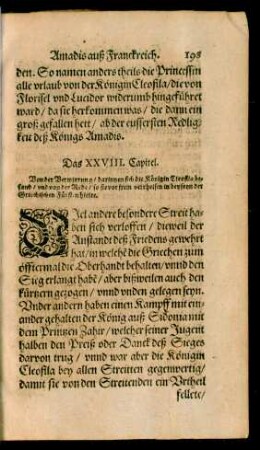 Amadis auß Franckreich. 198
den. So namen anders theils die Princessin
alle vrlaub von der Königin Cleofila/die von
Florisel vnd Lucidor widerumb hingeführet
ward/ da sie herkommen was/ die darin ein
groß gefallen hett/ ab der eussersten Redlig-
keit deß Königs Amadis.
Das XXVIII. Capitel.
Von der Verwirrung/ darinnen sich die Königin Cleofila be-
fand/ vnd von der Rede/ so
Griechischen Fürsten hielte.
Viel andere besondere Streit ha-
ben sich verloffen/ dieweil der
Anstandt deß Friedens gewehrt
hat/ in welche die Griechen zum
öfftermal die Oberhandt behalten/vnnd den
Sieg erlangt habẽ/ aber bißweilen auch den
kürtzern gezogen/ vnnd vnden gelegen seyn.
Vnder andern haben einen Kampff mit ein-
ander gehalten der König auß Sidonia mit
dem Printzen Zahir/welcher seiner Jugent
halben den Preiß oder Danck deß Sieges
darvon trug/ vnnd war aber die Königin
Cleofila bey allen Streitten gegenwertig/
damit sie von den Streitenden ein Vrtheil
fellete/